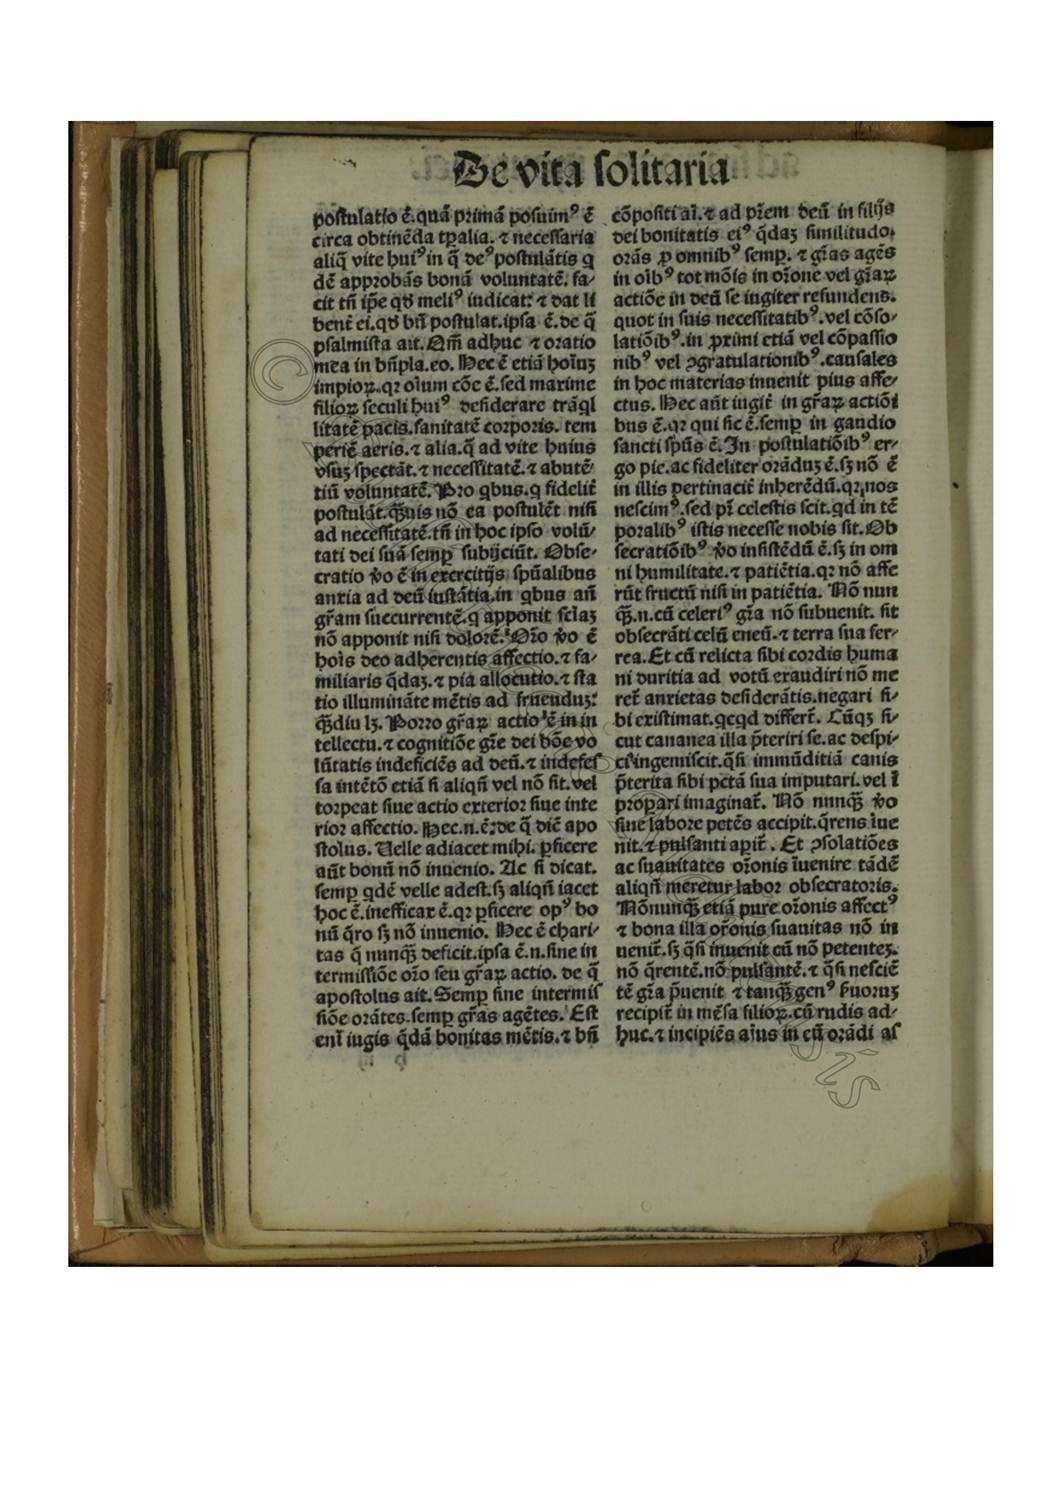 De vita ſolitaria
poſtulatio ē.quā primā poſuimꝰ ē
circa obtinēda tꝑalia.⁊ neceſſaria
aliq̄ vite huiꝰ in q̄ deꝰ poſtulātis q
dē approbās bonā voluntatē. fa⸗
cit tn̄ ip̄e qd̓ meliꝰ iudicat: ⁊ dat li
bent̄ ei.qd̓ bn̄ poſtulat.ipſa ē.de q̄
pſalmiſta ait. Qm̄ adhuc ⁊ oratio
mea in bn̄pla.eo. Hec ē etiā hoīuꝫ
impioꝝ.qꝛ oīum cōe ē.ſed maxime
filioꝝ ſeculi huiꝰ deſiderare trāq̇l
litatē pacis.ſanitatē corporis. tem
periē aeris.⁊ alia.q̄ ad vite huius
vſuꝫ ſpectāt.⁊ neceſſitatē.⁊ abutē⸗
tiū voluntatē. Pro qbus.q fidelit̄
poſtulāt.q̄ꝫuis nō ea poſtulēt niſi
ad neceſſitatē.tn̄ in hoc ipſo volū⸗
tati dei ſuā ſemꝑ ſubijciūt. Obſe⸗
cratio v̓o ē in exercitijs ſpūalibus
anxia ad deū inſtātia.in qbus an̄
gr̄am ſuccurrentē.q apponit ſcīaꝫ
nō apponit niſi dolorē. Or̄o v̓o ē
hoīs deo adherentis affectio.⁊ fa⸗
miliaris q̄daꝫ.⁊ pia allocutio.⁊ ſta
tio illuminate mētis ad fruenduꝫ:
q̄ꝫdiu lꝫ. Porro gr̄aꝝ actio ē in in
tellectu.⁊ cognitiōe gr̄e dei bōe vo
lūtatis indeficiēs ad deū.⁊ indefeſ
ſa intētō etiā ſi aliqn̄ vel nō ſit.vel
torpeat ſiue actio exterior ſiue inte
rior affectio. Hec.n.ē:de q̄ dic̄ apo
ſtolus. Velle adiacet mihi. ꝑficere
aūt bonū nō inuenio. Ac ſi dicat.
ſemꝑ qdē velle adeſt.ſꝫ aliqn̄ iacet
hoc ē.inefficax ē.qꝛ ꝑficere opꝰ bo
nū q̄ro ſꝫ nō inuenio. Hec ē chari⸗
tas q̄ nunq̄ꝫ deficit.ipſa ē.n.ſine in
termiſſiōe or̄o ſeu gr̄aꝝ actio. de q̄
apoſtolus ait. Semꝑ ſine intermiſ
ſiōe orātes.ſemꝑ gr̄as agētes. Eſt
eni̅ iugis q̄dā bonitas mētis.⁊ bn̄
cōpoſiti ai̅.⁊ ad pr̄em deū in filijs
dei bonitatis eiꝰ q̄daꝫ ſimilitudo.
orās ꝓ omnibꝰ ſemꝑ. ⁊ gr̄as agēs
in oi̅bꝰ tot mōis in or̄one vel gr̄aꝝ
actiōe in deū ſe iugiter refundens.
quot in ſuis neceſſitatibꝰ.vel cōſo⸗
latiōibꝰ.in ꝓximi etiā vel cōpaſſio
nibꝰ vel ꝯgratulationibꝰ.cauſales
in hoc materias inuenit pius affe⸗
ctus. Hec aūt iugit̄ in gr̄aꝝ actiōi
bus ē.qꝛ qui ſic ē.ſemꝑ in gaudio
ſancti ſpūs ē. In poſtulatiōibꝰ er⸗
go pie.ac fideliter orāduꝫ ē.ſꝫ nō ē
in illis pertinacit̄ inherēdū.qꝛ nos
neſcimꝰ.ſed pr̄ celeſtis ſcit.qd in tē
poralibꝰ iſtis neceſſe nobis ſit. Ob
ſecratiōibꝰ v̓o inſiſtēdū ē.ſꝫ in om
ni humilitate.⁊ patiētia.qꝛ nō affe
rūt fructū niſi in patiētia. Nō nun
q̄ꝫ.n.cū celeriꝰ gr̄a nō ſubuenit. fit
obſecrāti celū eneū.⁊ terra ſua fer⸗
rea. Et cū relicta ſibi cordis huma
ni duritia ad votū exaudiri nō me
ret̄ anxietas deſiderātis.negari ſi⸗
bi exiſtimat.qcqd differt̄. Cūqꝫ ſi⸗
cut cananea illa p̄teriri ſe.ac deſpi⸗
ci ingemiſcit.q̄ſi immūditiā canis
p̄terita ſibi pctā ſua imputari.vel i̅
ꝓperari imaginat̄. Nō nunq̄ꝫ v̓o
ſine labore petēs accipit.q̄rens īue
nit.⁊ pulſanti aꝑit̄. Et ꝯſolatiōes
ac ſuauitates or̄onis īuenire tādē
aliqn̄ meretur labor obſecratoris.
Nōnunq̄ꝫ etiā pure or̄onis affectꝰ
⁊ bona illa or̄onis ſuauitas nō in
uenit̄.ſꝫ q̄ſi inuenit cū nō petenteꝫ.
nō q̄rentē.nō pulſantē.⁊ q̄ſi neſciē
tē gr̄a p̄uenit ⁊ tanq̄ꝫ genꝰ ẜuoruꝫ
recipit̄ in mēſa filioꝝ.cū rudis ad⸗
huc.⁊ incipiēs ai̅us in eū orādi aſ